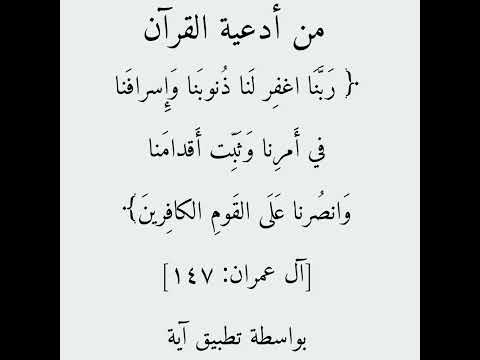 من أدعية القرآن
﴿ رَبَّنَا اغفِر لَنا ذُنوبَنا وَإِسرافَنا
في أَمرِنا وَثَبِّت أَقدامَنا
وَانصُرنا عَلَى القَومِ الكافِرينَ﴾
[آل عمران: ١٤٧]
بواسطة تطبيق آية